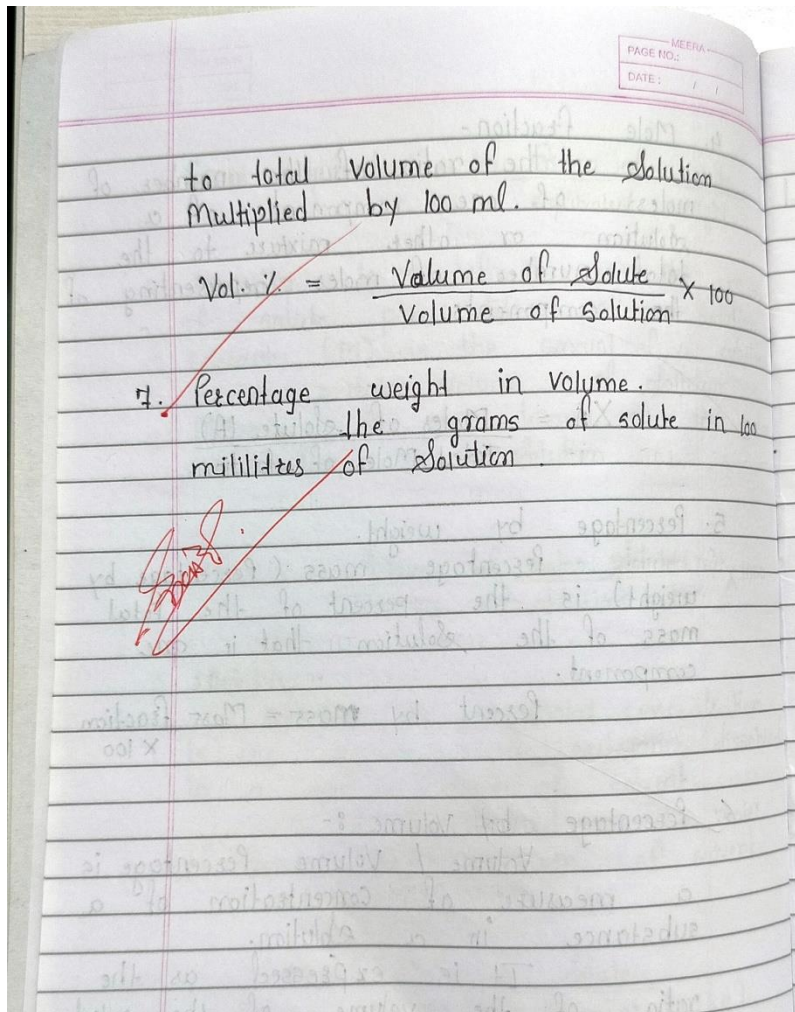 MEERA
PAGE NO.:
DATE: / /
to total Volume of the Solution
Multiplied by 100 ml.
Vol. % = Valume of Solute / Volume of Solution × 100
7. Percentage weight in volume.
the grams of solute in 100
mililitres of Solution.